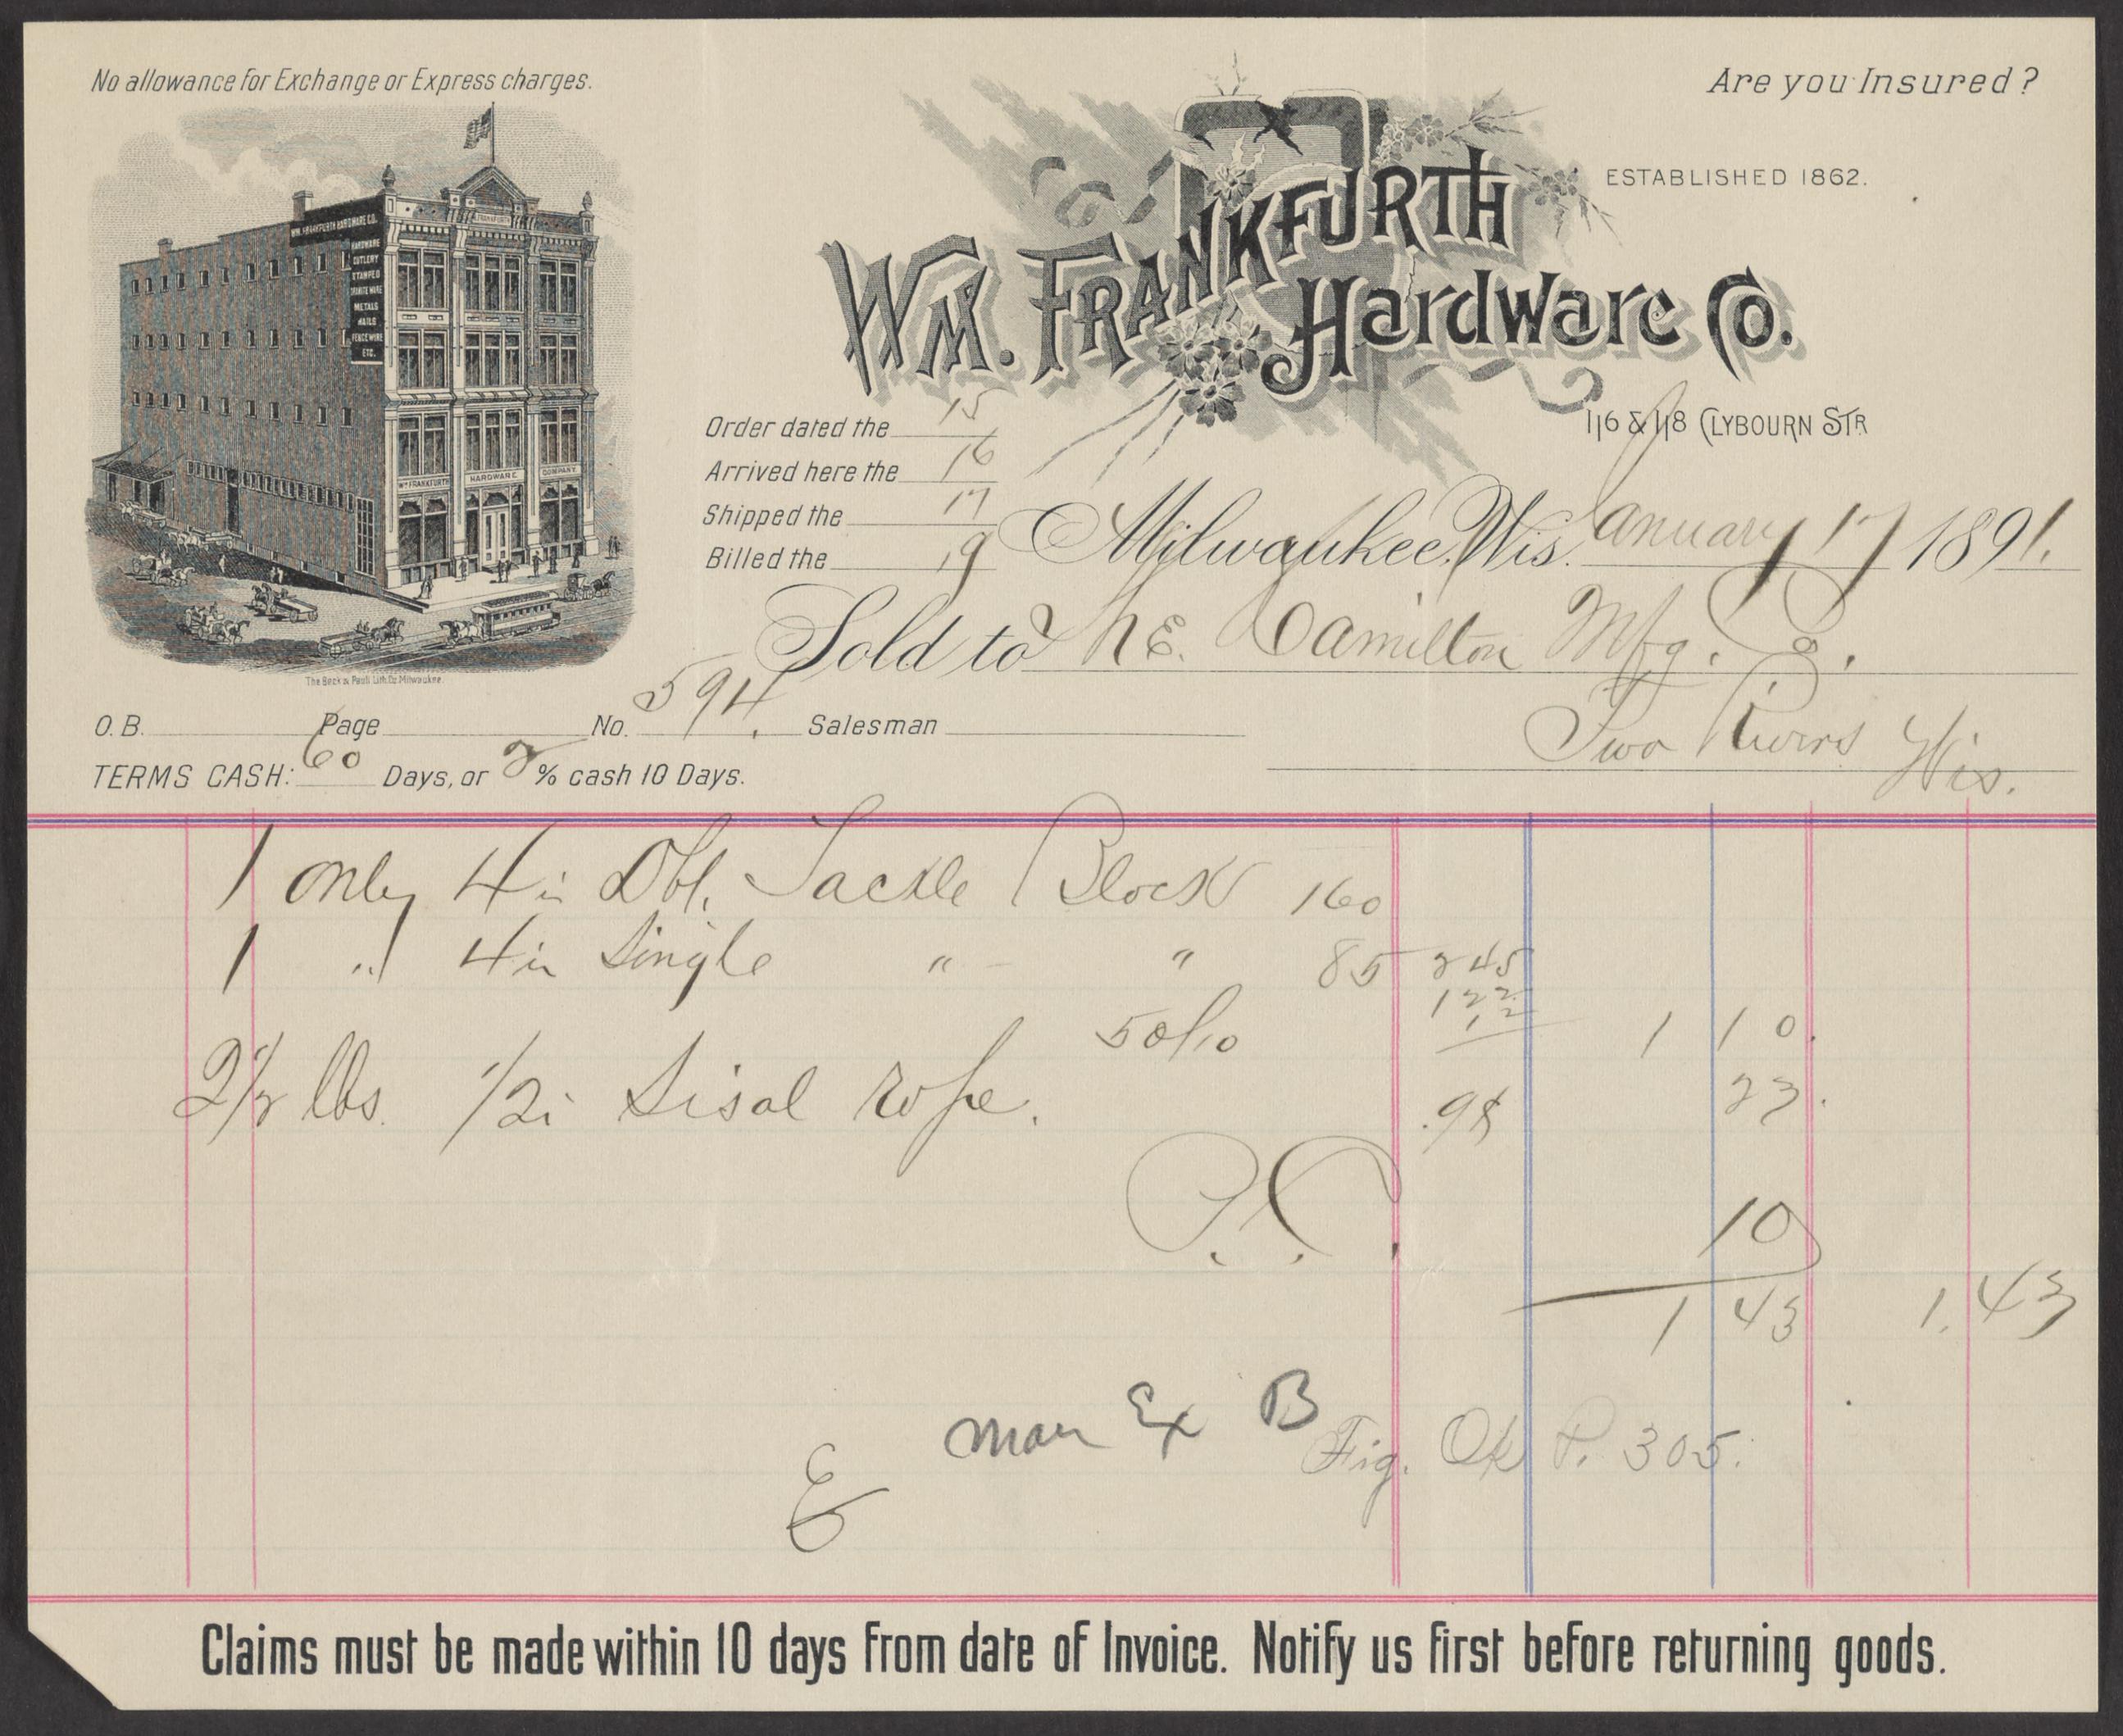 No allowance for Exchange or Express charges.
Are you Insured?
ESTABLISHED 1862.
WM. FRANKFURTH
Hardware Co.
116 & 118 CLYBOURN STR
WM. FRANKFURTH HARDWARE CO.
HARDWARE
CUTLERY
STAMPED
GRANITE WARE
METALS
NAILS
FENCE WIRE
ETC.
FRANKFURTH
WM FRANKFURTH HARDWARE COMPANY
The Beck & Pauli Lith. Co. Milwaukee.
Order dated the 15
Arrived here the 16
Shipped the 17
Billed the 19
Milwaukee, Wis. January 17 1891.
Sold to Mfg. Co.
Two Rivers Wis.
O.B. Page No. 594. Salesman
TERMS CASH: 60 Days, or 2 % cash 10 Days.
1 only 4 in Dbl. Tackle Block 160
1 " 4 in Single " " 85 245
122
12
50/10 1 10.
2 1/2 lbs. 1/2 i Sisal Rope. 23.
10
1 43 1.43
Man Ex B
Fig. Ok P. 305.
Claims must be made within 10 days from date of Invoice. Notify us first before returning goods.